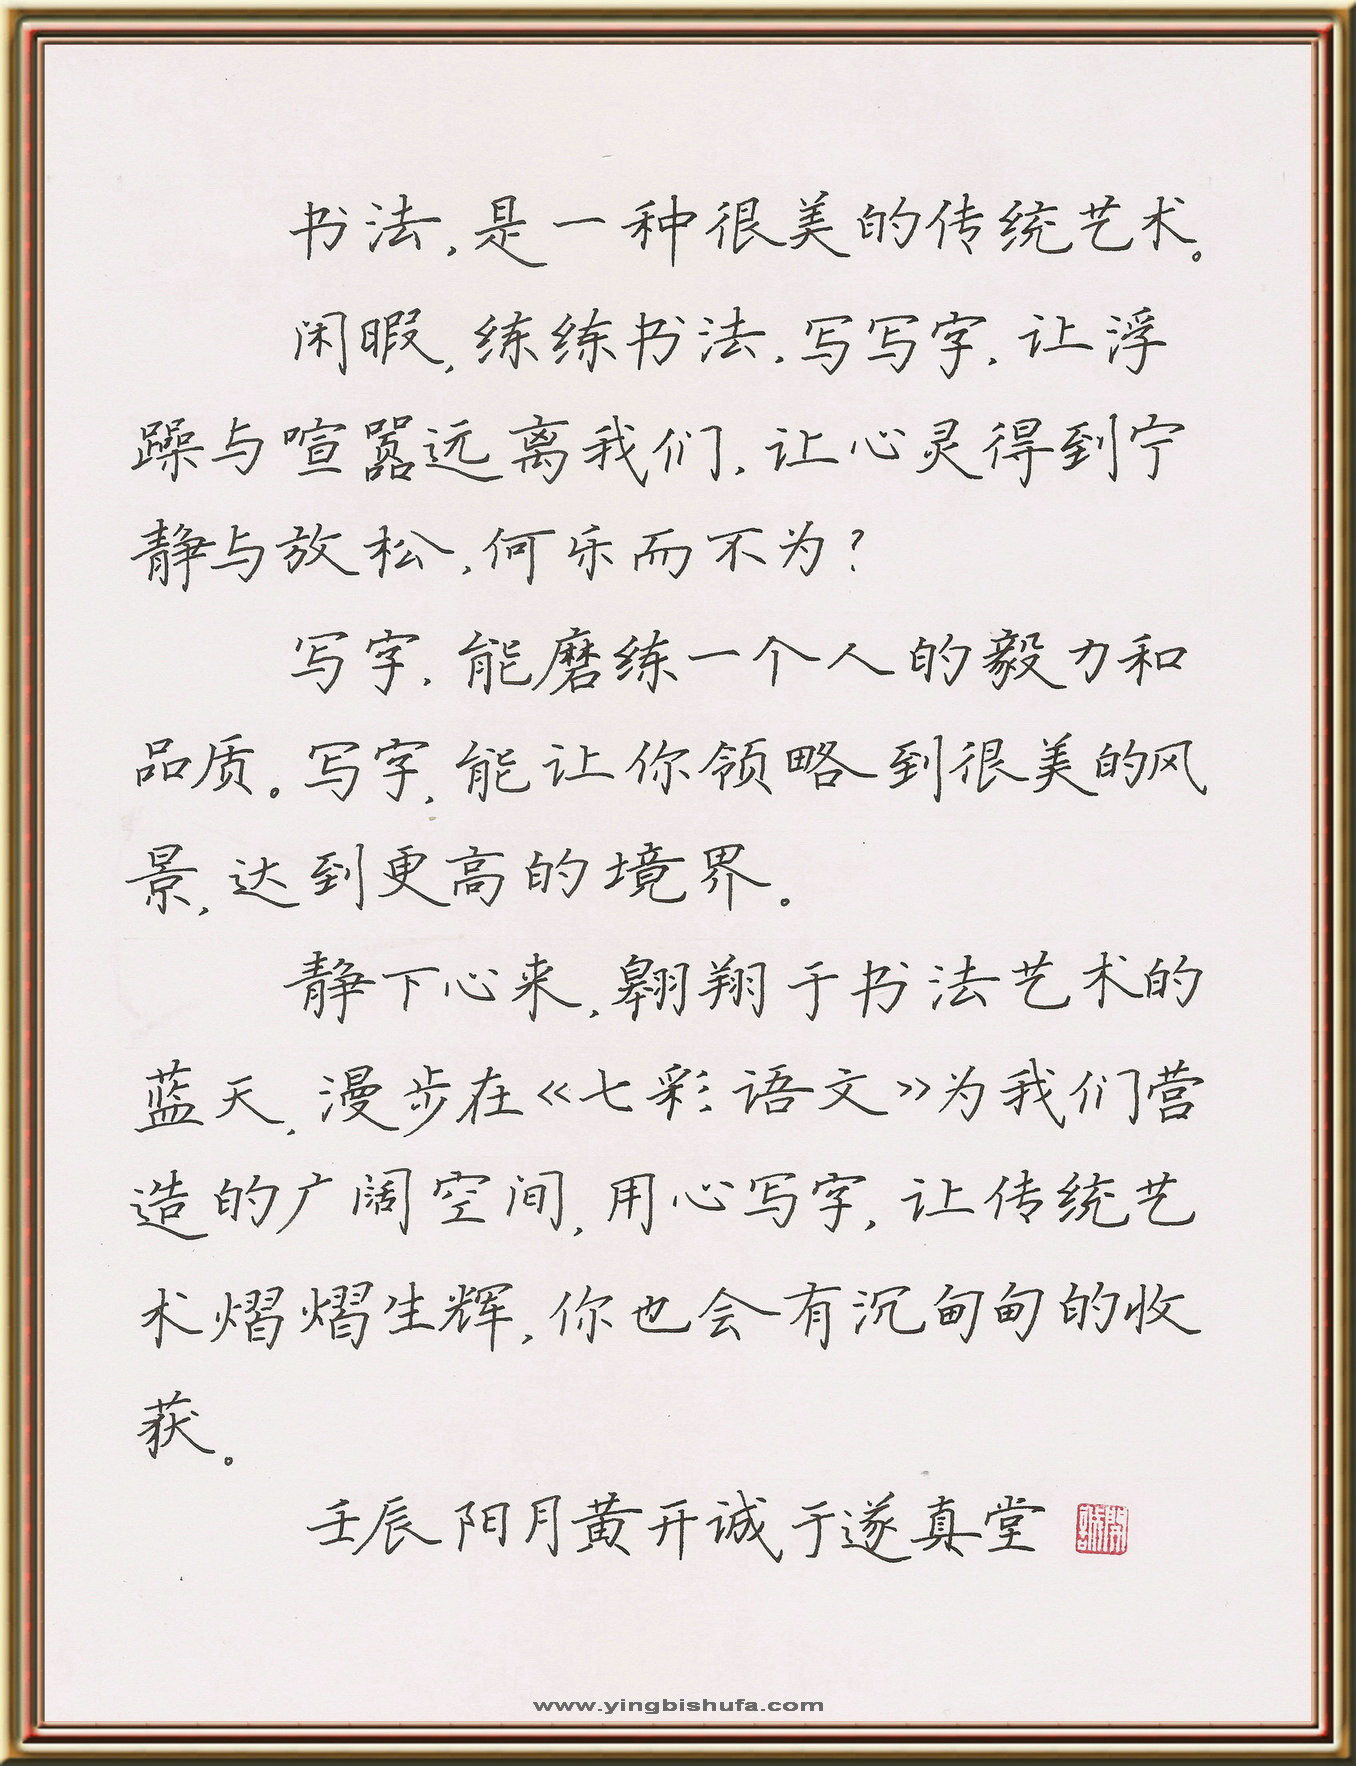 书法,是一种很美的传统艺术。
闲暇,练练书法,写写字,让浮
躁与喧嚣远离我们,让心灵得到宁
静与放松,何乐而不为?
写字,能磨练一个人的毅力和
品质。写字,能让你领略到很美的风
景,达到更高的境界。
静下心来,翱翔于书法艺术的
蓝天,漫步在《七彩语文》为我们营
造的广阔空间,用心写字,让传统艺
术熠熠生辉,你也会有沉甸甸的收
获。
壬辰阳月黄开诚于遂真堂
www.yingbishufa.com